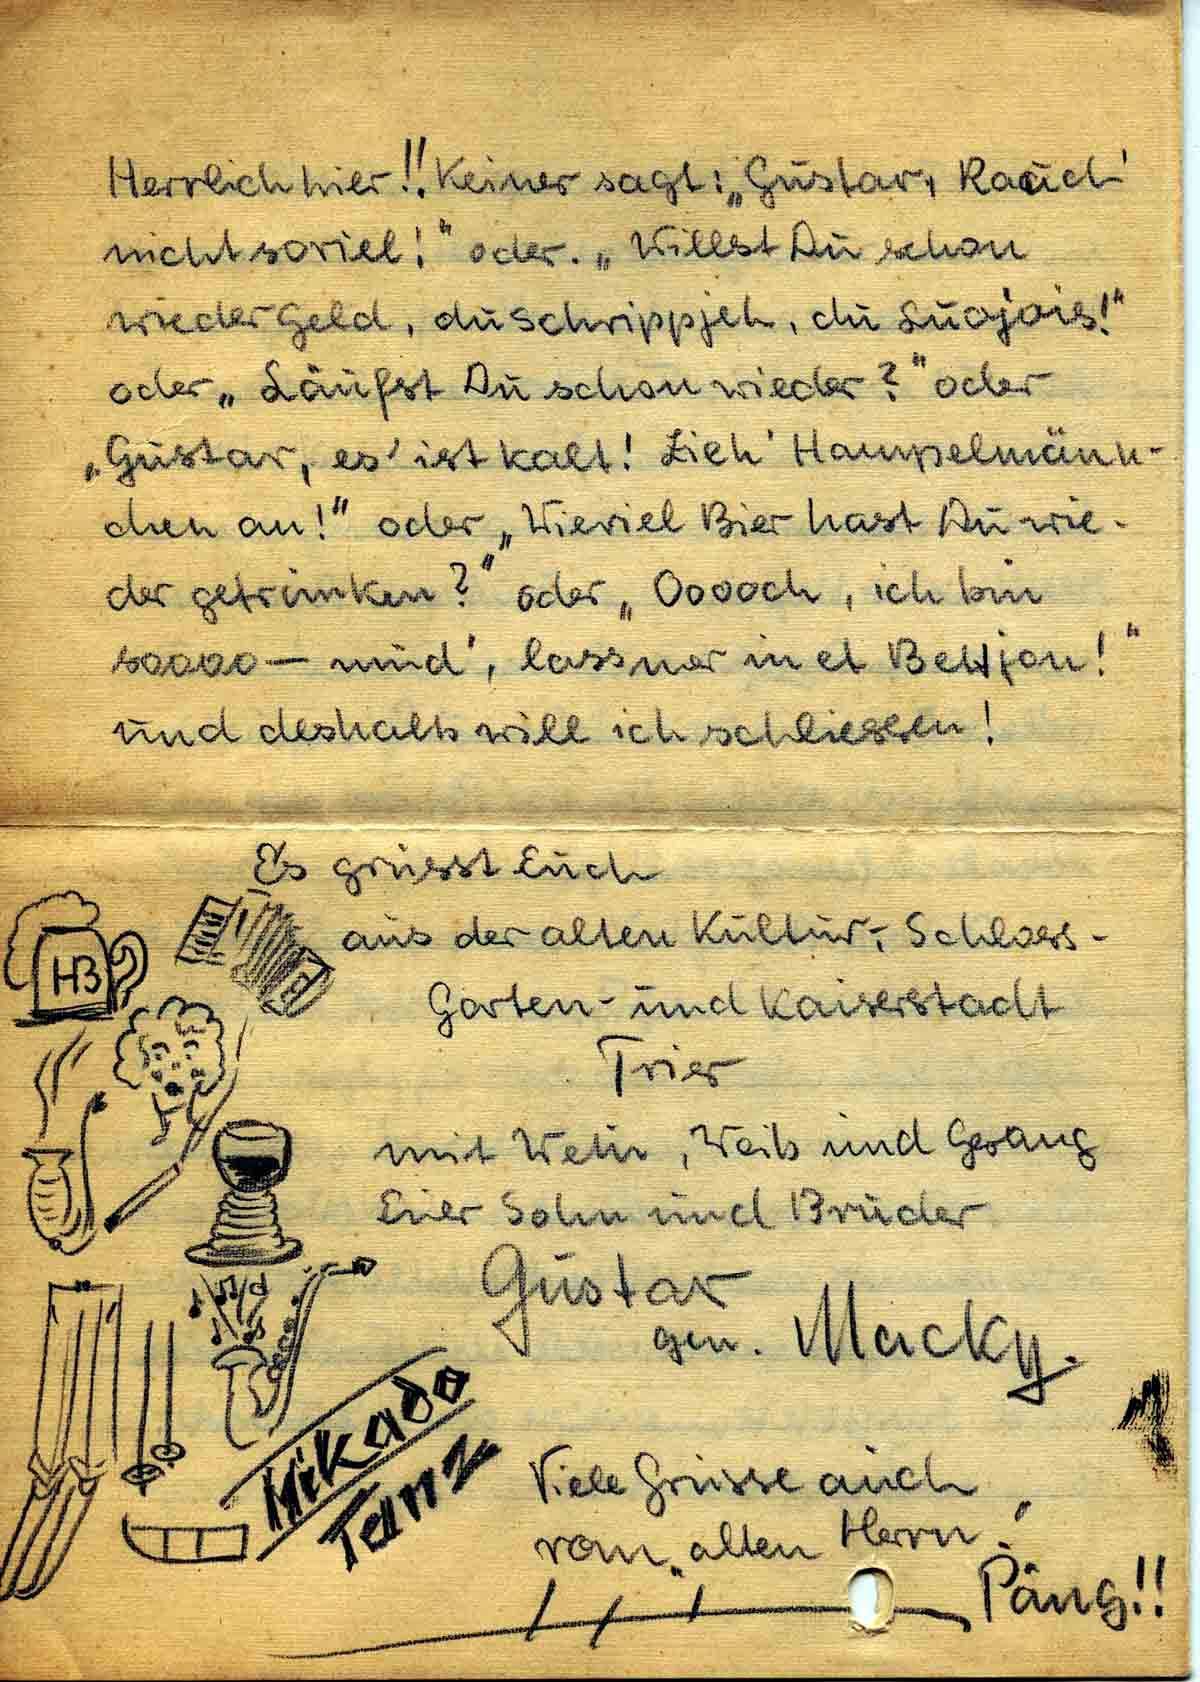 Herrlich hier!! Keiner sagt: „Gustav, Rauch'
nicht soviel!" oder. „Willst Du schon
wieder Geld, du Schrippjeh, du Luojais!"
oder „Läufst Du schon wieder?" oder
„Gustav, es ist kalt! Zieh' Hampelmänn-
chen an!" oder „Wieviel Bier hast Du wie-
der getrunken?" oder „Ooooch, ich bin
soooo — müd', lass ner in et Bettjon!"
und deshalb will ich schliessen!
Es grüsst Euch
aus der alten Kultur-, Schloss-
Garten- und Kaiserstadt
Trier
mit Wein, Weib und Gesang
Euer Sohn und Bruder
Gustav
gen. Macky.
HB
Mikado
Tanz
Viele Grüsse auch
vom „alten Herrn"!
Päng!!